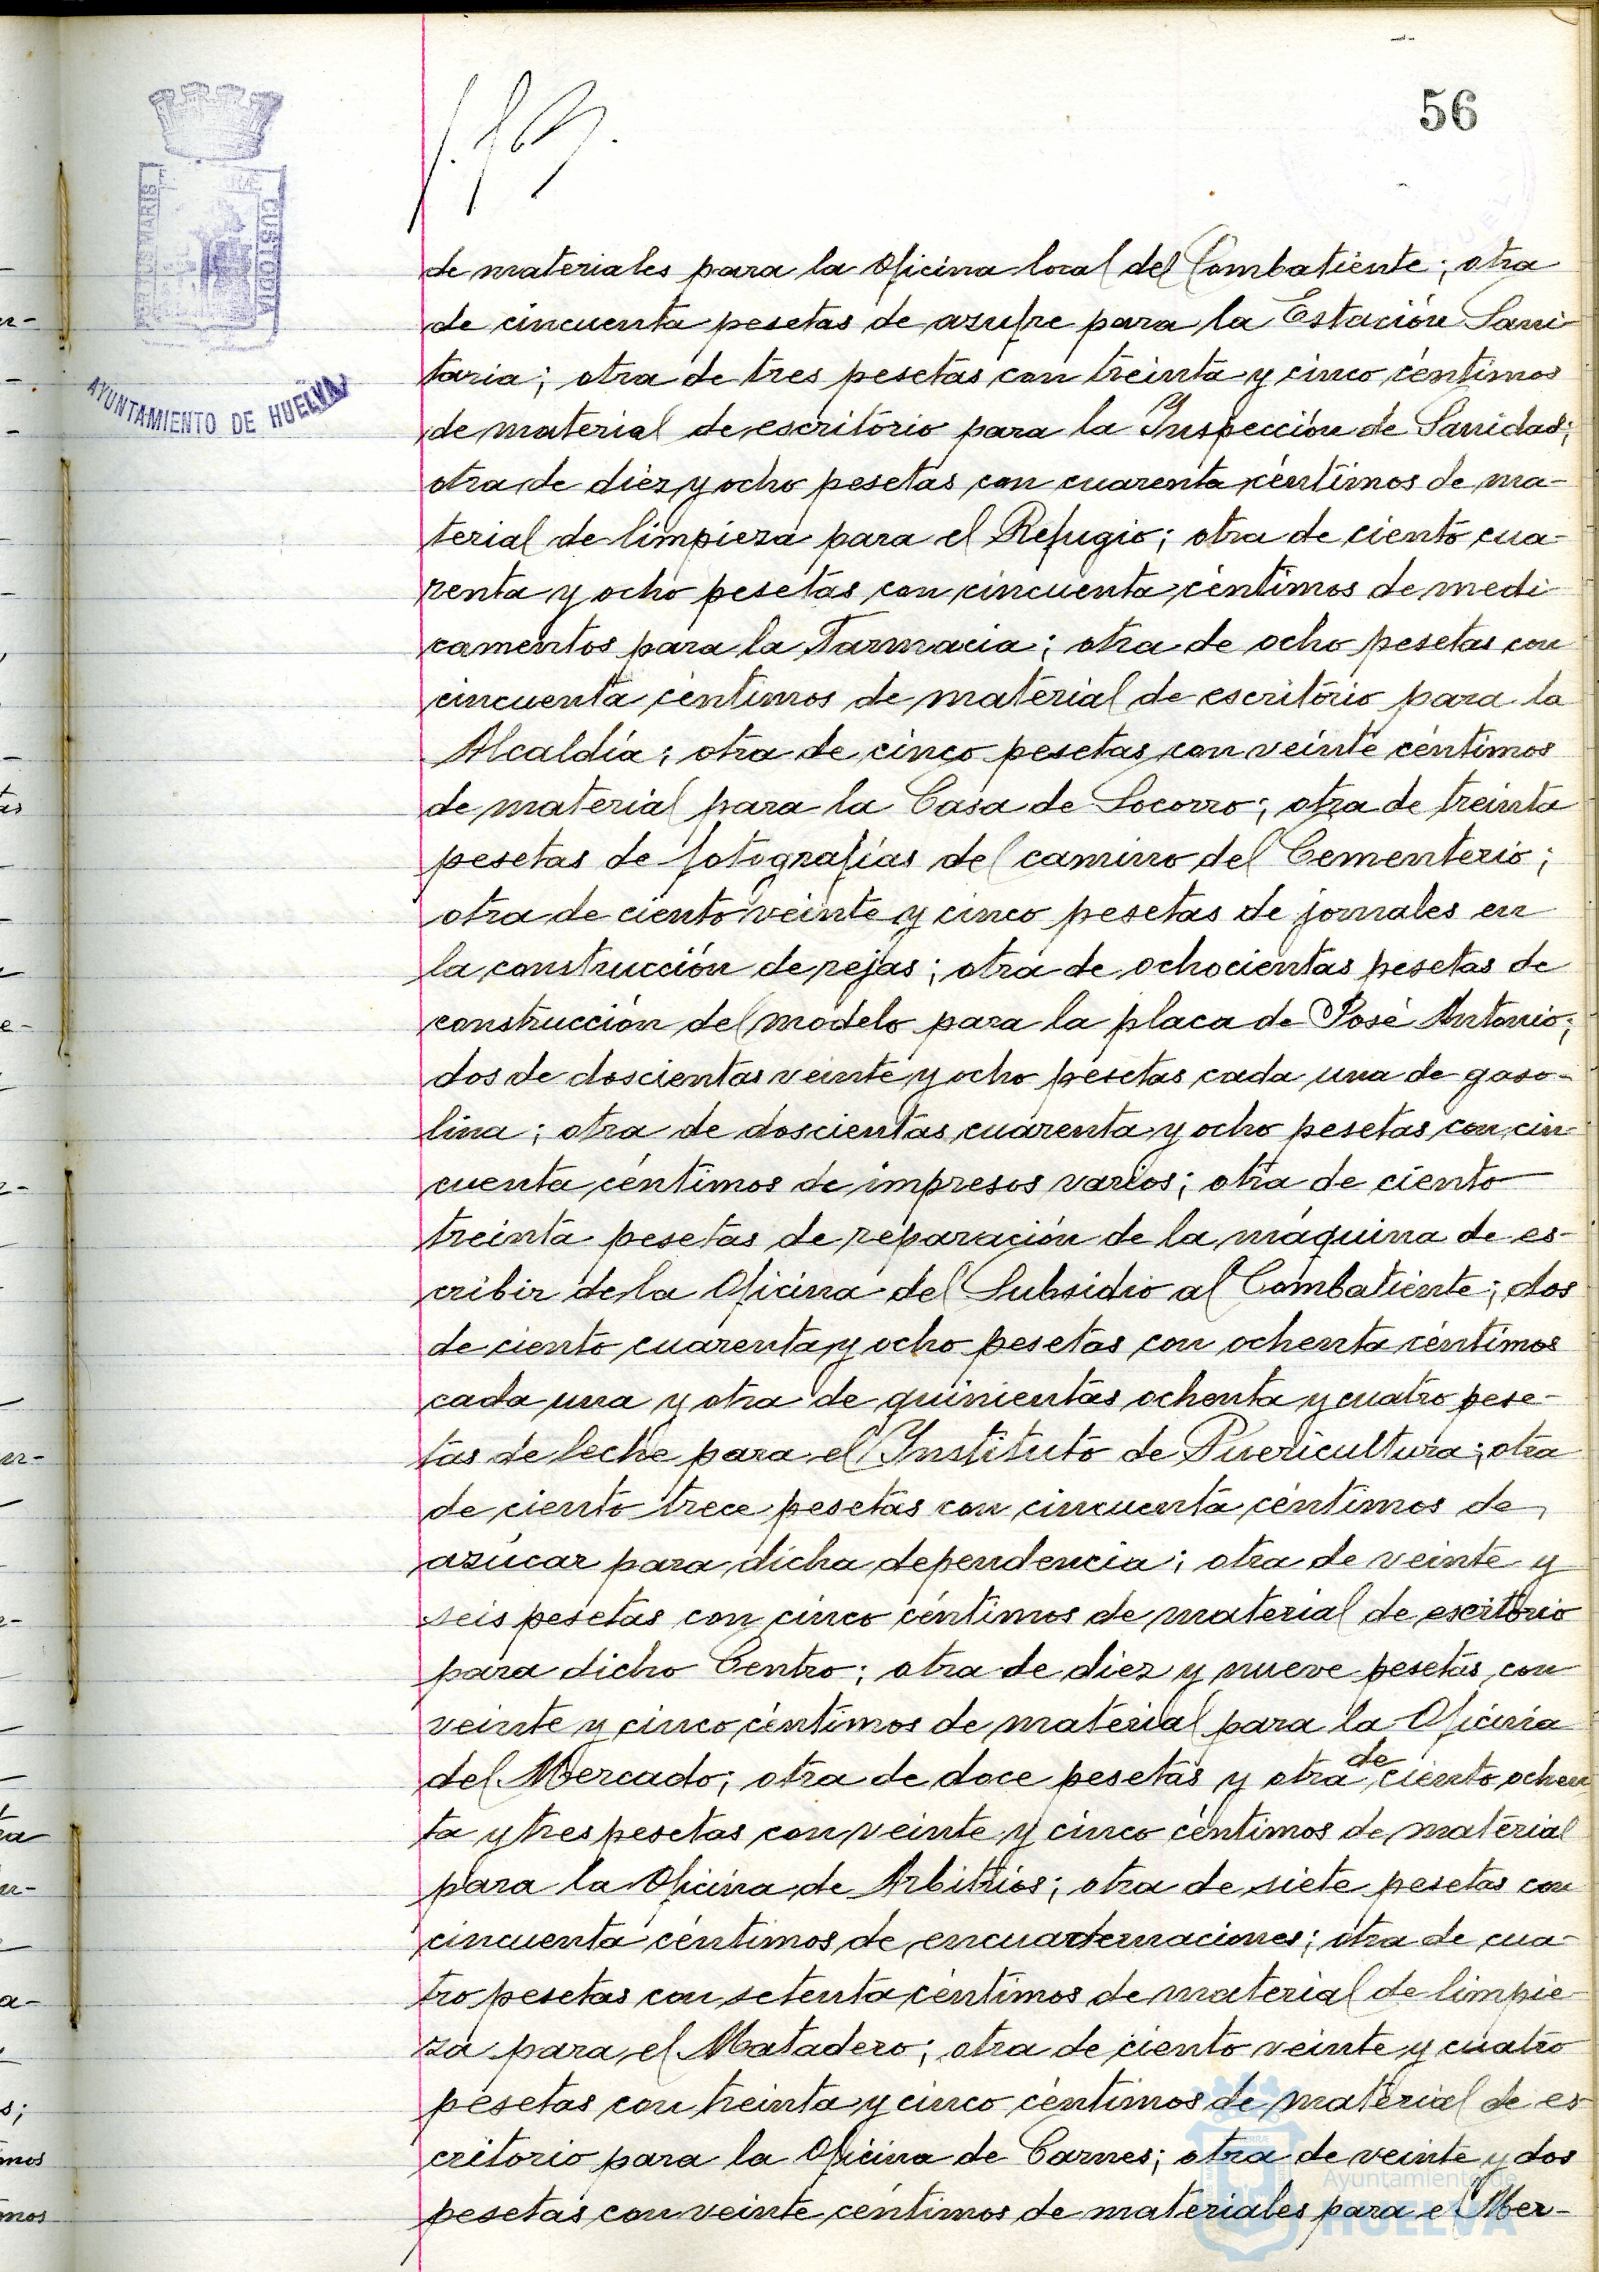 56
PORTUS MARIS
CUSTODIA
AYUNTAMIENTO DE HUELVA
de materiales para la Oficina local del Combatiente; otra
de cincuenta pesetas de azufre para la Estación Sani
taria; otra de tres pesetas con treinta y cinco céntimos
de material de escritorio para la Inspección de Sanidad;
otra de diez y ocho pesetas con cuarenta céntimos de ma-
terial de limpieza para el Refugio; otra de ciento cua-
renta y ocho pesetas con cincuenta céntimos de medi
camentos para la Farmacia; otra de ocho pesetas con
cincuenta céntimos de material de escritorio para la
Alcaldía; otra de cinco pesetas con veinte céntimos
de material para la Casa de Socorro; otra de treinta
pesetas de fotografías del camino del Cementerio;
otra de ciento veinte y cinco pesetas de jornales en
la construcción de rejas; otra de ochocientas pesetas de
construcción del modelo para la placa de José Antonio;
dos de doscientas veinte y ocho pesetas cada una de gaso-
lina; otra de doscientas cuarenta y ocho pesetas con cin
cuenta céntimos de impresos varios; otra de ciento
treinta pesetas de reparación de la máquina de es-
cribir de la Oficina del Subsidio al Combatiente; dos
de ciento cuarenta y ocho pesetas con ochenta céntimos
cada una y otra de quinientas ochenta y cuatro pese-
tas de leche para el Instituto de Puericultura; otra
de ciento trece pesetas con cincuenta céntimos de
azúcar para dicha dependencia; otra de veinte y
seis pesetas con cinco céntimos de material de escritorio
para dicho Centro; otra de diez y nueve pesetas con
veinte y cinco céntimos de material para la Oficina
del Mercado; otra de doce pesetas y otra de ciento ochen
ta y tres pesetas con veinte y cinco céntimos de material
para la Oficina de Arbitrios; otra de siete pesetas con
cincuenta céntimos de encuadernaciones; otra de cua-
tro pesetas con setenta céntimos de material de limpie-
za para el Matadero; otra de ciento veinte y cuatro
pesetas con treinta y cinco céntimos de material de es
critorio para la Oficina de Carnes; otra de veinte y dos
pesetas con veinte céntimos de materiales para el Mer-
Ayuntamiento de
HUELVA